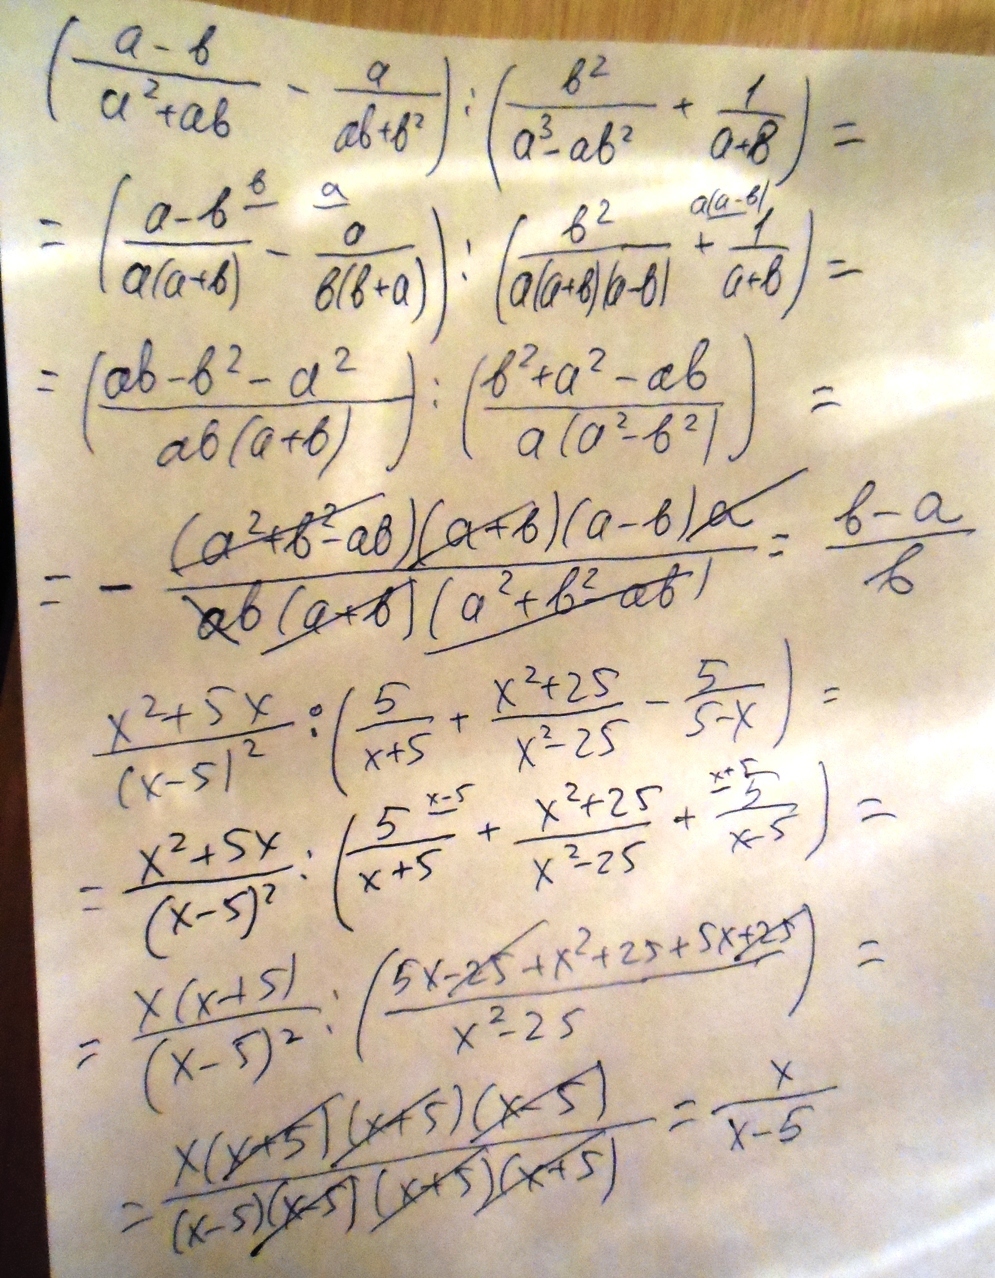 (a-b/a²+ab - a/ab+b²) : (b²/a³-ab² + 1/a+b) =
= (a-b^b/a(a+b) - ^a a/b(b+a)) : (b²/a(a+b)(a-b) + ^a(a-b) 1/a+b) =
= (ab-b²-a²/ab(a+b)) : (b²+a²-ab/a(a²-b²)) =
= - (a²+b²-ab)(a+b)(a-b)a/ab(a+b)(a²+b²-ab) = b-a/b
x²+5x/(x-5)² : (5/x+5 + x²+25/x²-25 - 5/5-x) =
= x²+5x/(x-5)² : (5^x-5/x+5 + x²+25/x²-25 + ^x+5 5/x-5) =
= x(x+5)/(x-5)² : (5x-25+x²+25+5x+25/x²-25) =
= x(x+5)(x+5)(x-5)/(x-5)(x-5)(x+5)(x+5) = x/x-5